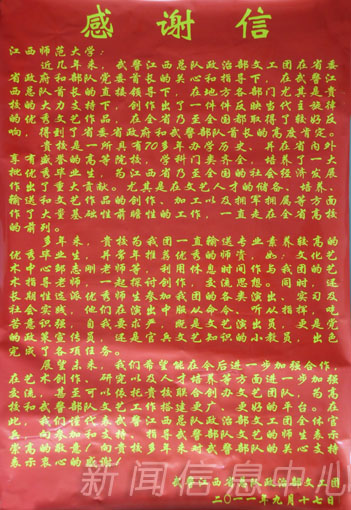 感谢信
江西师范大学：
近几年来，武警江西总队政治部文工团在省委
省政府和部队党委首长的关心和指导下，在武警江
西总队首长的直接领导下，在地方各部门尤其是贵
校的大力支持下，创作出了一件件反映当代主旋律
的优秀文艺作品，在全省乃至全国都取得了较好反
响，得到了省委省政府和武警部队首长的高度肯定。
贵校是一所具有70多年办学历史、并在省内外
享有盛誉的高等院校，学科门类齐全，培养了一大
批优秀毕业生，为江西省乃至全国的社会经济发展
作出了重大贡献。尤其是在文艺人才的储备、培养、
输送和文艺作品的创作、加工以及拥军拥属等方面
作了大量基础性前瞻性的工作，一直走在全省高校
的前列。
多年来，贵校为我团一直输送专业素养较高的
优秀毕业生，并常年推荐优秀的师资，如：文化艺
术中心邹志刚老师等，利用休息时间作与我团的艺
术指导老师，一起探讨创作，交流思想。同时，还
长期性选派优秀师生参加我团的各类演出、实习及
社会实践，他们在演出中服从命令、听从指挥，艰
苦意识强，自我要求严，既是文艺演出员，更是党
的政策宣传员，还是官兵文艺知识的小教员，出色
完成了各项任务。
展望未来，我们希望能在今后进一步加强合作，
在艺术创作、研究以及人才培养等方面进一步加强
交流，甚至可以依托贵校联合创办文艺团队，为高
校和武警部队文艺工作搭建更广、更好的平台。在
此，我们谨代表武警江西总队政治部文工团全体官
兵，向参加和支持、指导武警部队文艺的师生表示
崇高的敬意！向贵校多年来对武警部队的关心支持
表示衷心的感谢！
武警江西省总队政治部文工团
二〇一一年九月十七日
新闻信息中心